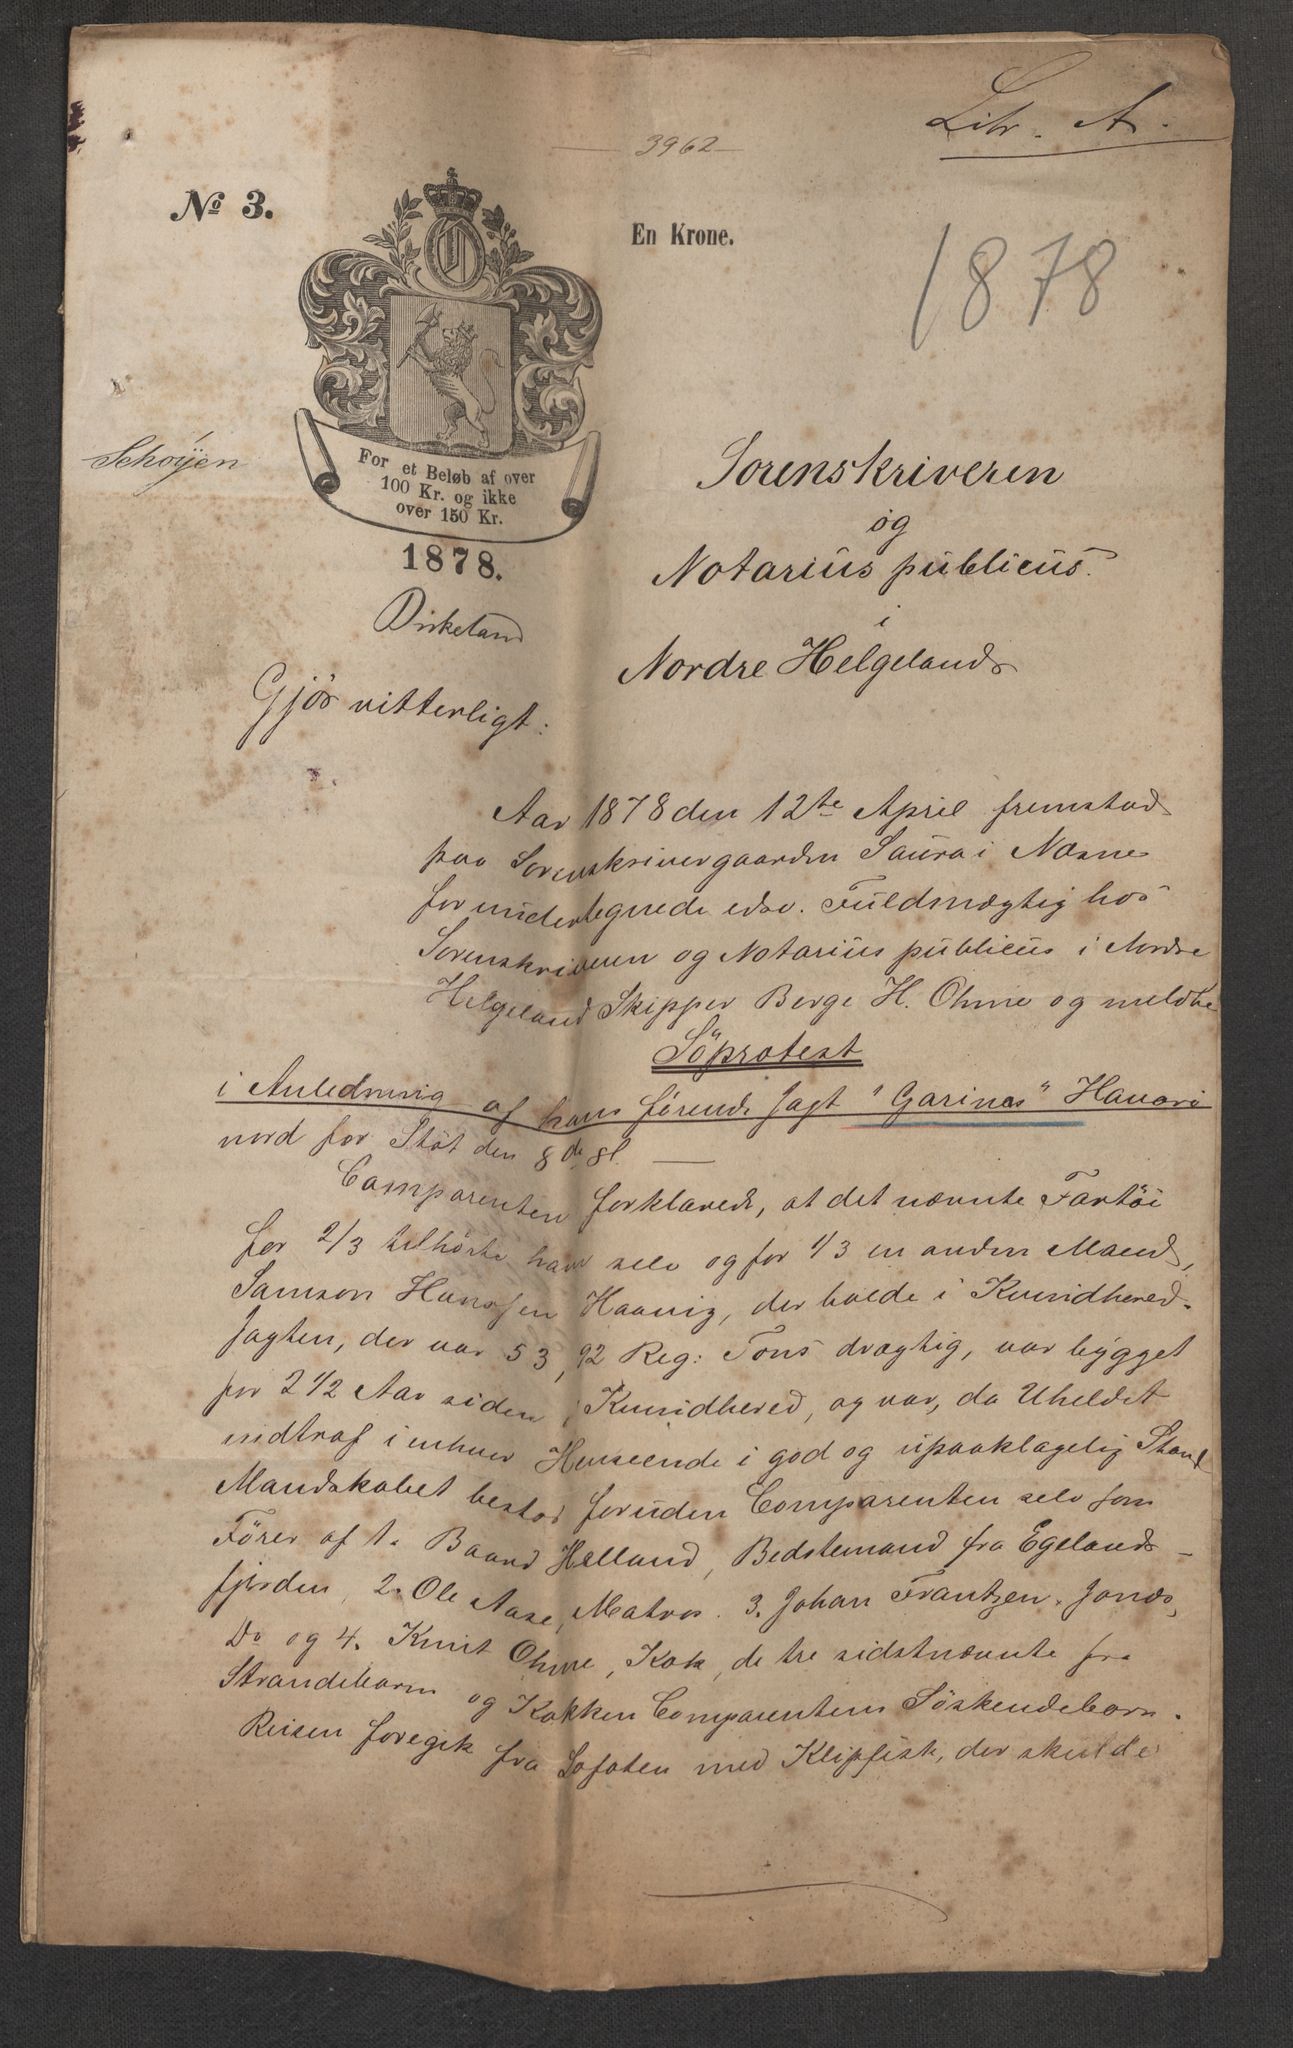 Litr. A.
3962
No 3.
En Krone.
1878
Schøyen
For et Beløb af over
100 Kr. og ikke
over 150 Kr.
1878.
Birkeland
Sorenskriveren
og
Notarius publicus
i
Nordre Helgeland
Gjör vitterligt:
Aar 1878 den 12te April fremstod
paa Sorenskrivergaarden Saura i Nesne
for undertegnede edsv. Fuldmægtig hos
Sorenskriveren og Notarius publicus i Nordre
Helgeland Skipper Berge H. Ohme og meldte
Söprotest
i Anledning af hans förende Jagt "Garines" Havari
nord for Stöt den 8de
Comparenten forklarede, at det nævnte Fartöi
for 2/3 tilhörte ham selv og for 1/3 en anden Mand,
Samson Hanssen Haavig, der boede i Kvindhered.
Jagten, der var 53,92 Reg: Tons drægtig, var bygget
for 2 1/2 Aar siden i Kvindhered, og var, da Uheldet
indtraf i enhver Henseende i god og upaaklagelig Stand
Mandskabet bestod foruden Comparenten selv som
Förer af 1. Baard Helland, Bedstemand fra Egelands-
fjorden, 2. Ole Aase, Matros. 3. Johan Frantzen Jonds,
Do og 4. Knut Ohme, Kok, de tre sidstnævnte fra
Strandebarm og Kokken Comparentens Söskendebarn.
Reisen foregik fra Lofoten med Klipfisk, der skulde